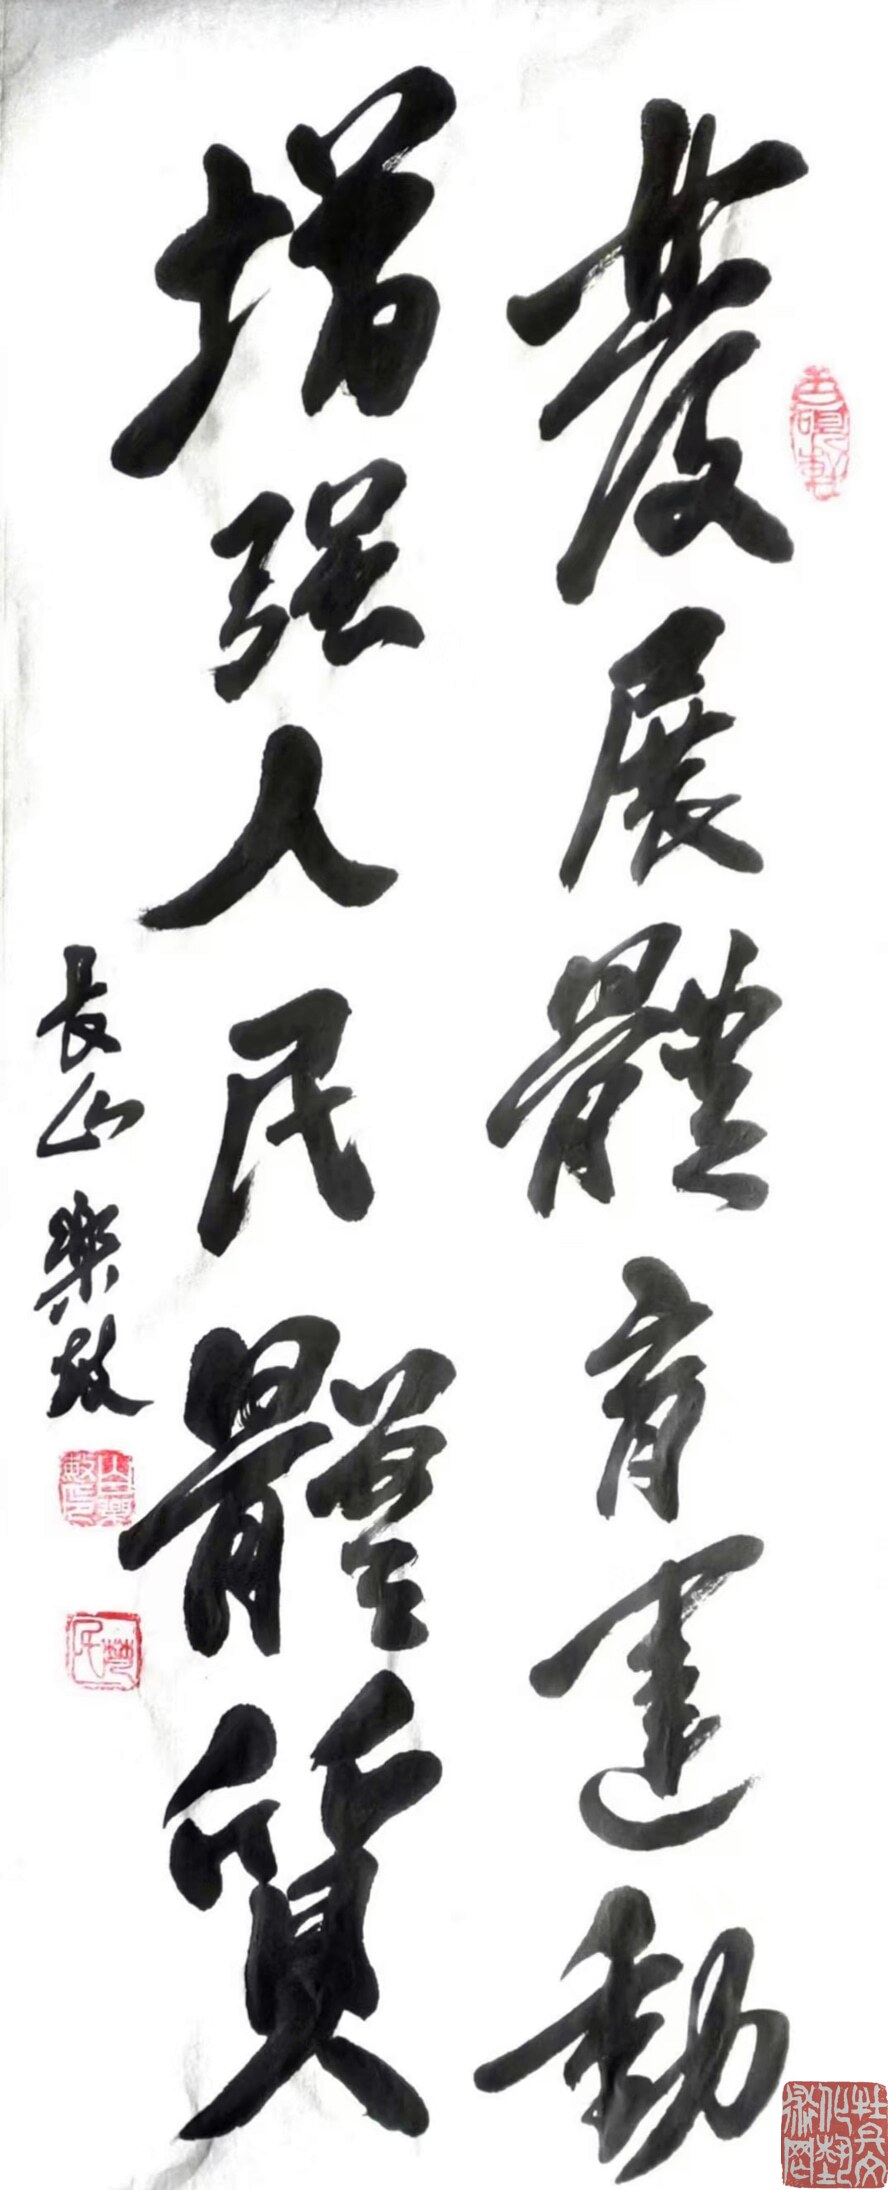 發展體育運動
增强人民體質
長山樂敏